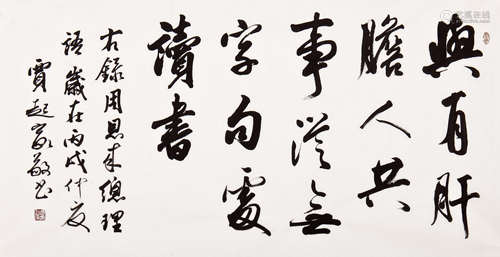 與有肝
膽人共
事從無
字句處
讀書
右錄周恩來總理
語歲在丙戌仲夏
賈起家敬書